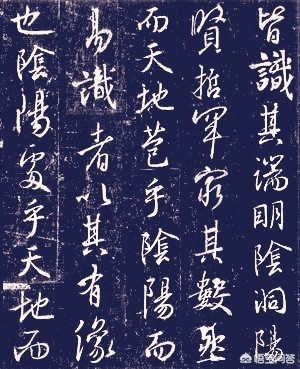 皆識其端明陰洞陽
賢哲罕窮其數然
而天地苞乎陰陽而
易識者以其有像
也陰陽處乎天地而
悟空问答